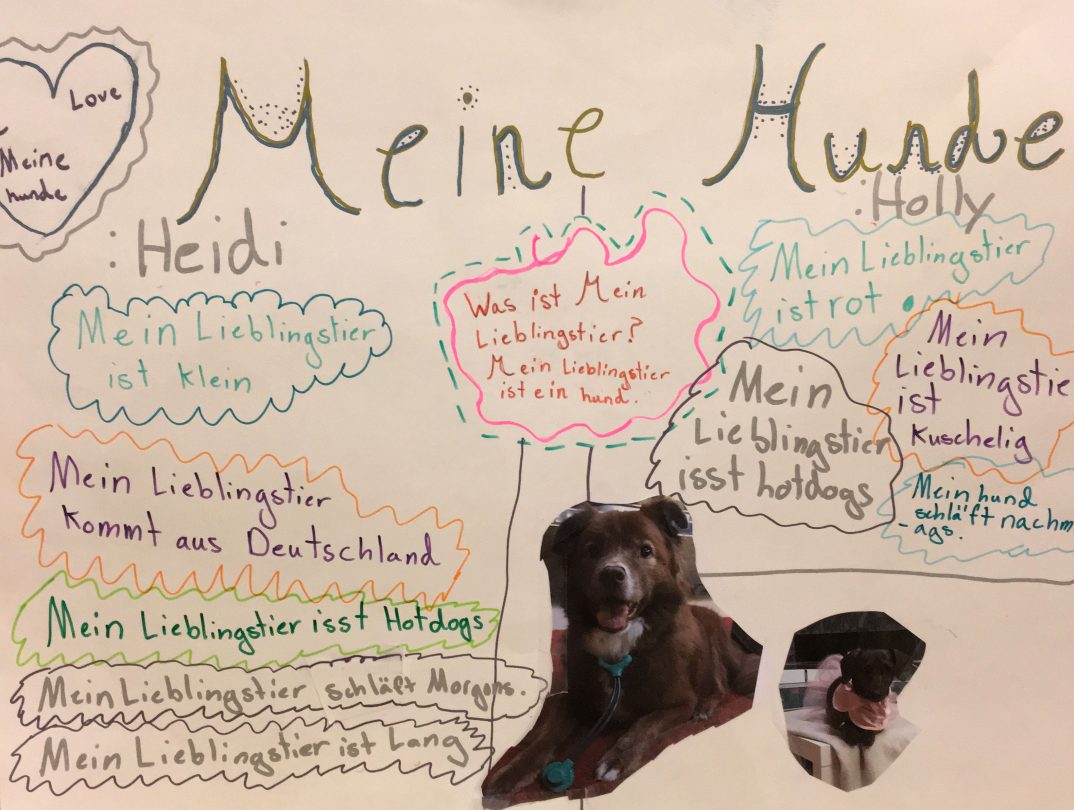 Love
Meine
hunde
Meine Hunde
:Heidi
Mein Lieblingstier
ist klein
Mein Lieblingstier
kommt aus Deutschland
Mein Lieblingstier isst Hotdogs
Mein Lieblingstier schläft Morgons.
Mein Lieblingstier ist Lang
Was ist Mein
Lieblingstier?
Mein Lieblingstier
ist ein hund.
:Holly
Mein Lieblingstier
ist rot
Mein
Lieblingstie
ist
Kuschelig
Mein
Lieblingstier
isst hotdogs
Mein hund
schläft nachm
-ags.